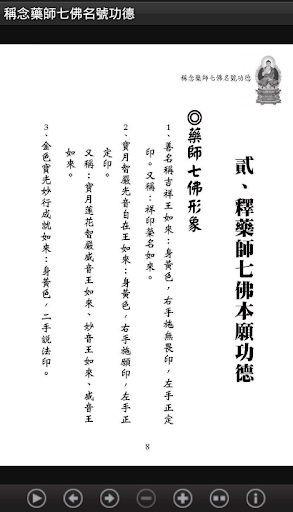 稱念藥師七佛名號功德
稱念藥師七佛名號功德
貳、釋藥師七佛本願功德
◎藥師七佛形象
1、善名稱吉祥王如來：身黃色，右手施無畏印，左手正定
印。又稱：祥印藥名如來。
2、寶月智嚴光音自在王如來：身黃色，右手施願印，左手正
定印。
又稱：寶月蓮花智嚴威音王如來、妙音王如來、威音王
如來。
3、金色寶光妙行成就如來：身黃色，二手說法印。
8